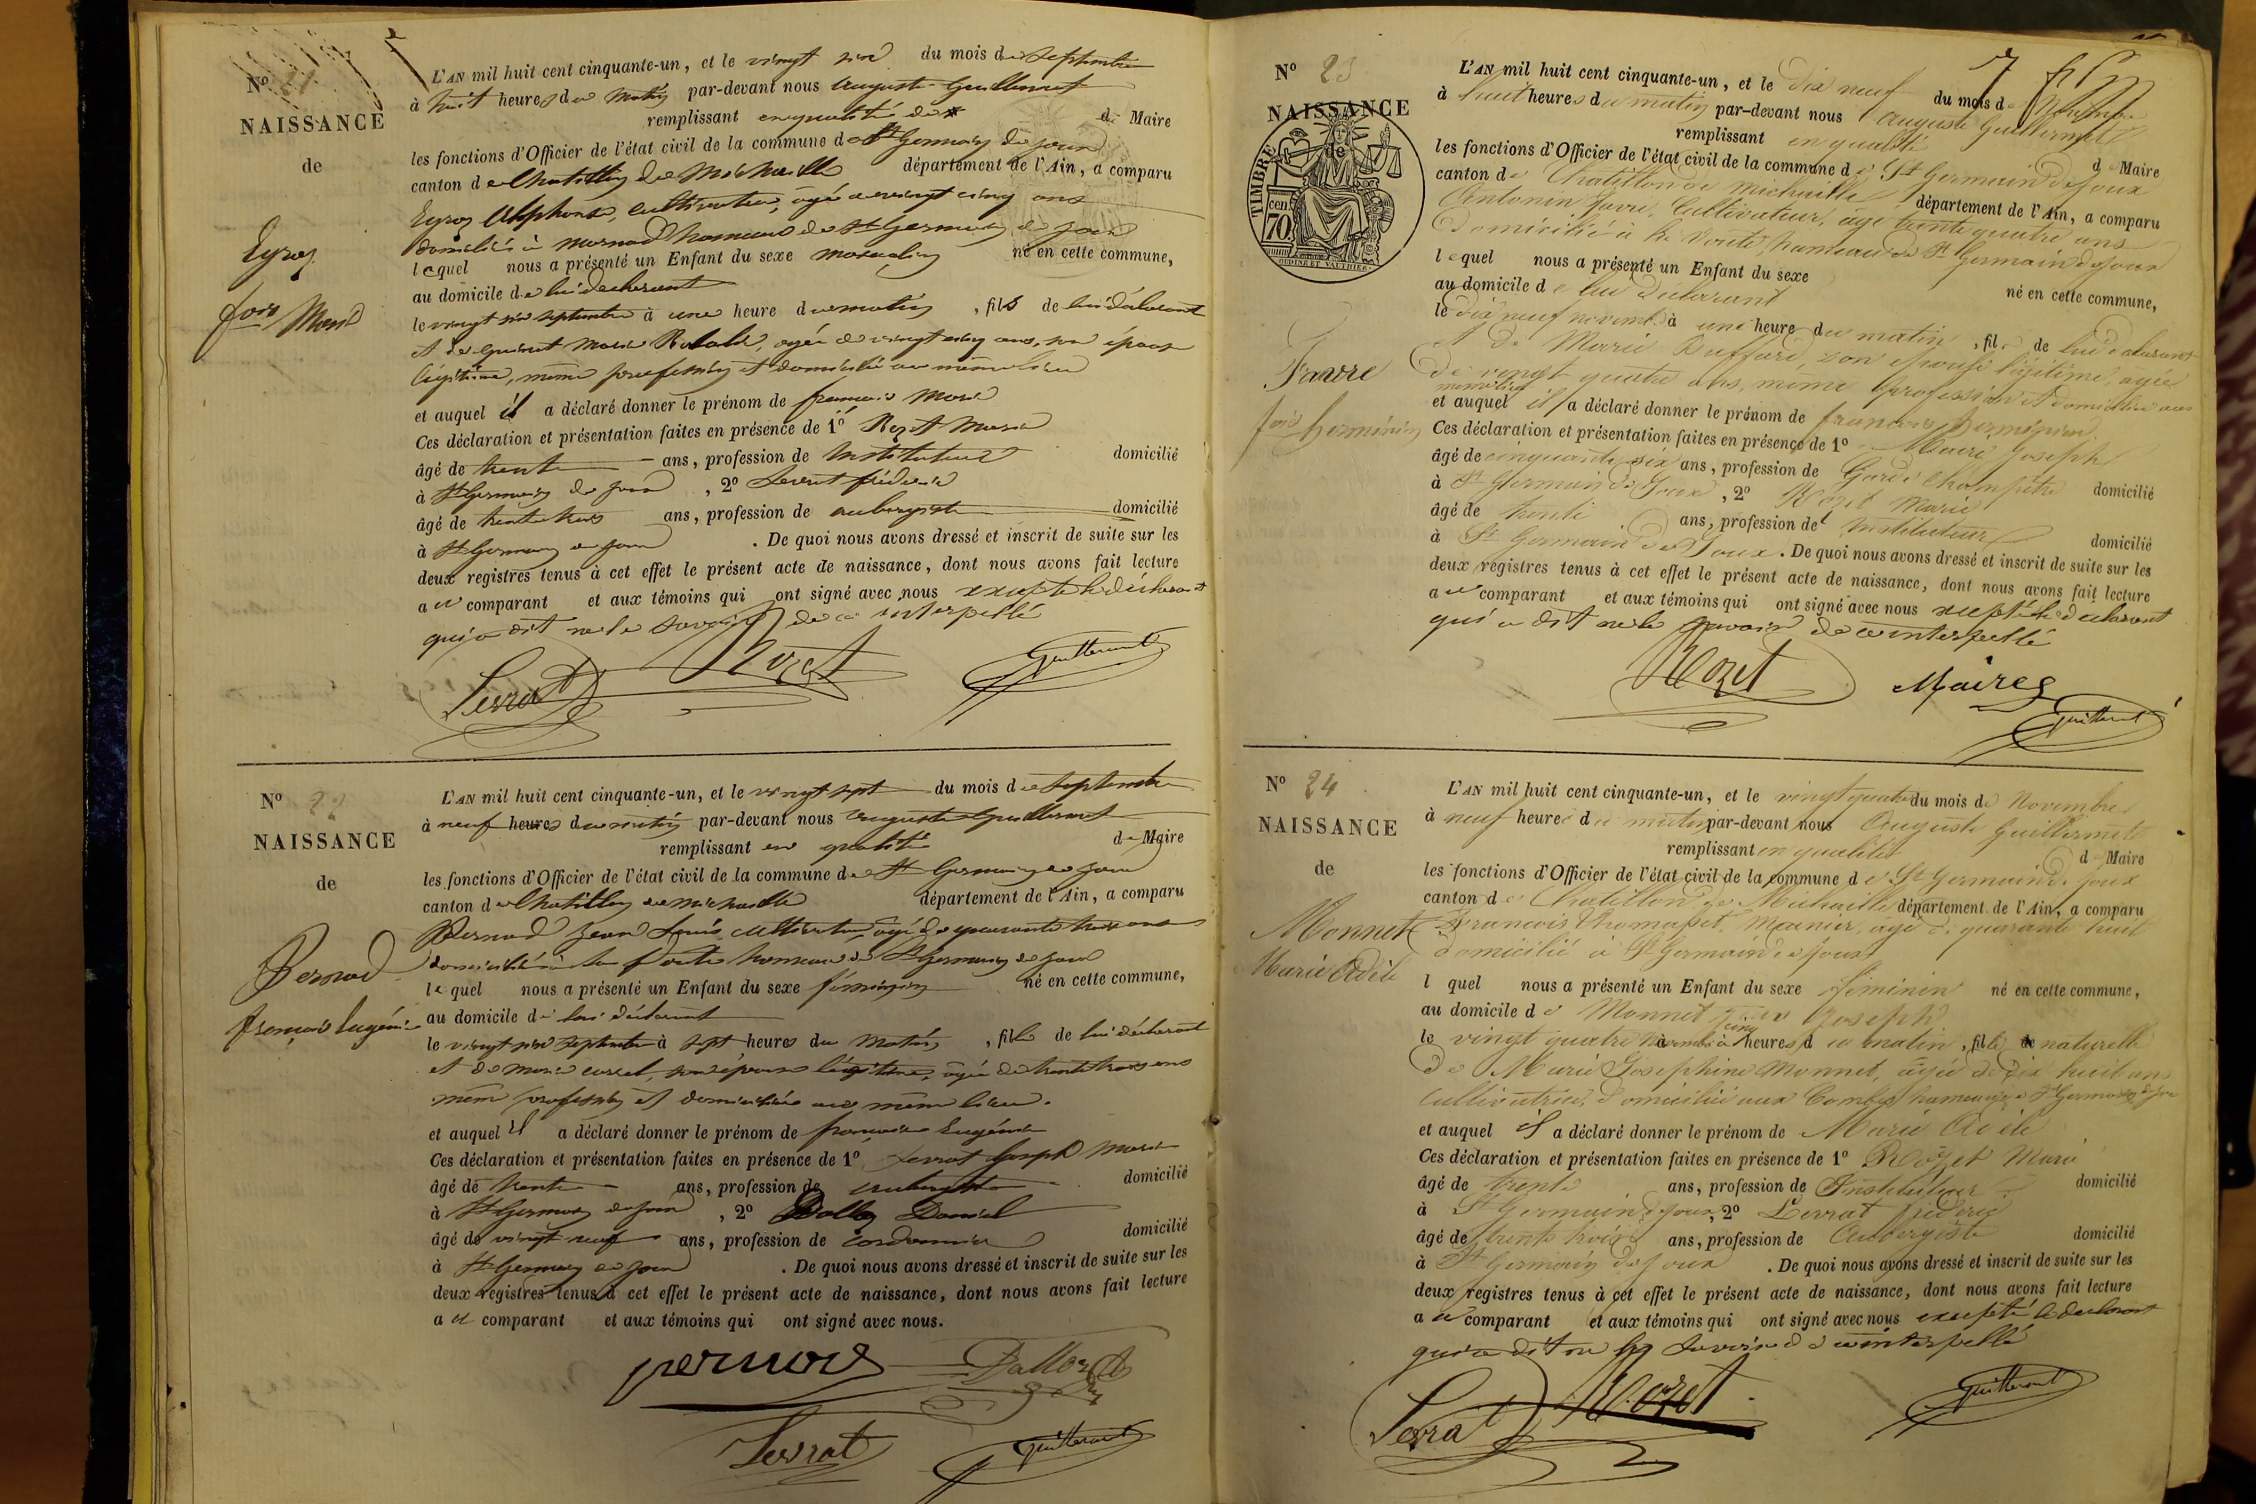 N° 21
NAISSANCE
de
Eyroz
fois Marie
L'AN mil huit cent cinquante-un, et le vingt six du mois de septembre
à huit heures du matin par-devant nous Auguste Guillermet
remplissant en qualité de Maire
les fonctions d'Officier de l'état civil de la commune de St Germain de Joux
canton de Chatillon de Michaille département de l'Ain, a comparu
Eyroz Alphonse, cultivateur, âgé de vingt cinq ans
domicilié à hameau de St Germain de Joux
lequel nous a présenté un Enfant du sexe masculin né en cette commune,
au domicile de lui déclarant
le vingt six septembre à une heure du matin, fils de lui déclarant
et de Marie Rosalie, âgée de vingt cinq ans, son épouse
légitime, même profession et domiciliée au même lieu
et auquel il a déclaré donner le prénom de françois Marie
Ces déclaration et présentation faites en présence de 1° Rozet Marie
âgé de trente ans, profession de Instituteur domicilié
à St Germain de Joux, 2° Levrat frédéric
âgé de trente trois ans, profession de aubergiste domicilié
à St Germain de Joux. De quoi nous avons dressé et inscrit de suite sur les
deux registres tenus à cet effet le présent acte de naissance, dont nous avons fait lecture
au comparant et aux témoins qui ont signé avec nous excepté le déclarant
qui a dit ne le savoir de ce interpellé
Levrat Rozet Guillermet
N° 22
NAISSANCE
de
Pernod
françoise Eugénie
L'AN mil huit cent cinquante-un, et le vingt sept du mois de septembre
à neuf heures du matin par-devant nous Auguste Guillermet
remplissant en qualité de Maire
les fonctions d'Officier de l'état civil de la commune de St Germain de Joux
canton de Chatillon de Michaille département de l'Ain, a comparu
Pernod Jean Louis, cultivateur, âgé de quarante trois ans
domicilié à la Voute hameau de St Germain de Joux
lequel nous a présenté un Enfant du sexe féminin né en cette commune,
au domicile de lui déclarant
le vingt six septembre à sept heures du matin, fille de lui déclarant
et de Marie, son épouse légitime, âgée de trente trois ans
même profession et domiciliée au même lieu.
et auquel il a déclaré donner le prénom de françoise Eugénie
Ces déclaration et présentation faites en présence de 1° Levrat Joseph Marie
âgé de trente ans, profession de aubergiste domicilié
à St Germain de Joux, 2° Dalloz Daniel
âgé de vingt neuf ans, profession de cordonnier domicilié
à St Germain de Joux. De quoi nous avons dressé et inscrit de suite sur les
deux registres tenus à cet effet le présent acte de naissance, dont nous avons fait lecture
au comparant et aux témoins qui ont signé avec nous.
pernod Dalloz D
Levrat Guillermet
N° 23
NAISSANCE
de
TIMBRE
cen
70
Favre
fois herménégi
L'AN mil huit cent cinquante-un, et le dix neuf du mois de Novembre
à huit heures du matin par-devant nous Auguste Guillermet
remplissant en qualité de Maire
les fonctions d'Officier de l'état civil de la commune de St Germain de Joux
canton de Chatillon de Michaille département de l'Ain, a comparu
Antonin Favre, Cultivateur, âgé trente quatre ans
domicilié à la Voute, hameau de St Germain de Joux
lequel nous a présenté un Enfant du sexe né en cette commune,
au domicile de lui déclarant
le dix neuf novemb. à une heure du matin, fils de lui déclarant
et de Marie Buffard, son épouse légitime, âgée
de vingt quatre ans, même profession et domiciliée au
même lieu
et auquel il a déclaré donner le prénom de françois
Ces déclaration et présentation faites en présence de 1° Maire Joseph
âgé de cinquante six ans, profession de Garde Champêtre domicilié
à St Germain de Joux, 2° Rozet Marie
âgé de trente ans, profession de Instituteur domicilié
à St Germain de Joux. De quoi nous avons dressé et inscrit de suite sur les
deux registres tenus à cet effet le présent acte de naissance, dont nous avons fait lecture
au comparant et aux témoins qui ont signé avec nous excepté le déclarant
qui a dit ne le savoir de ce interpellé
Rozet Maire Guillermet
N° 24
NAISSANCE
de
Monnet
Marie Adèle
L'AN mil huit cent cinquante-un, et le vingt quatre du mois de Novembre
à neuf heures du matin par-devant nous Auguste Guillermet
remplissant en qualité de Maire
les fonctions d'Officier de l'état civil de la commune de St Germain de Joux
canton de Chatillon de Michaille département de l'Ain, a comparu
François Thomasset, Meunier, âgé de quarante huit
domicilié à St Germain de Joux
lquel nous a présenté un Enfant du sexe féminin né en cette commune,
au domicile de Monnet Joseph
le vingt quatre novembre à cinq heures du matin, fille naturelle
de Marie Josephine Monnet, âgée de dix huit ans
Cultivatrice, domiciliée aux Combes hameau de St Germain de Joux
et auquel il a déclaré donner le prénom de Marie Adèle
Ces déclaration et présentation faites en présence de 1° Rozet Marie
âgé de trente ans, profession de Instituteur domicilié
à St Germain de Joux, 2° Levrat frédéric
âgé de trente trois ans, profession de Aubergiste domicilié
à St Germain de Joux. De quoi nous avons dressé et inscrit de suite sur les
deux registres tenus à cet effet le présent acte de naissance, dont nous avons fait lecture
au comparant et aux témoins qui ont signé avec nous excepté le déclarant
qui a dit ne le savoir de ce interpellé
Levrat Rozet Guillermet